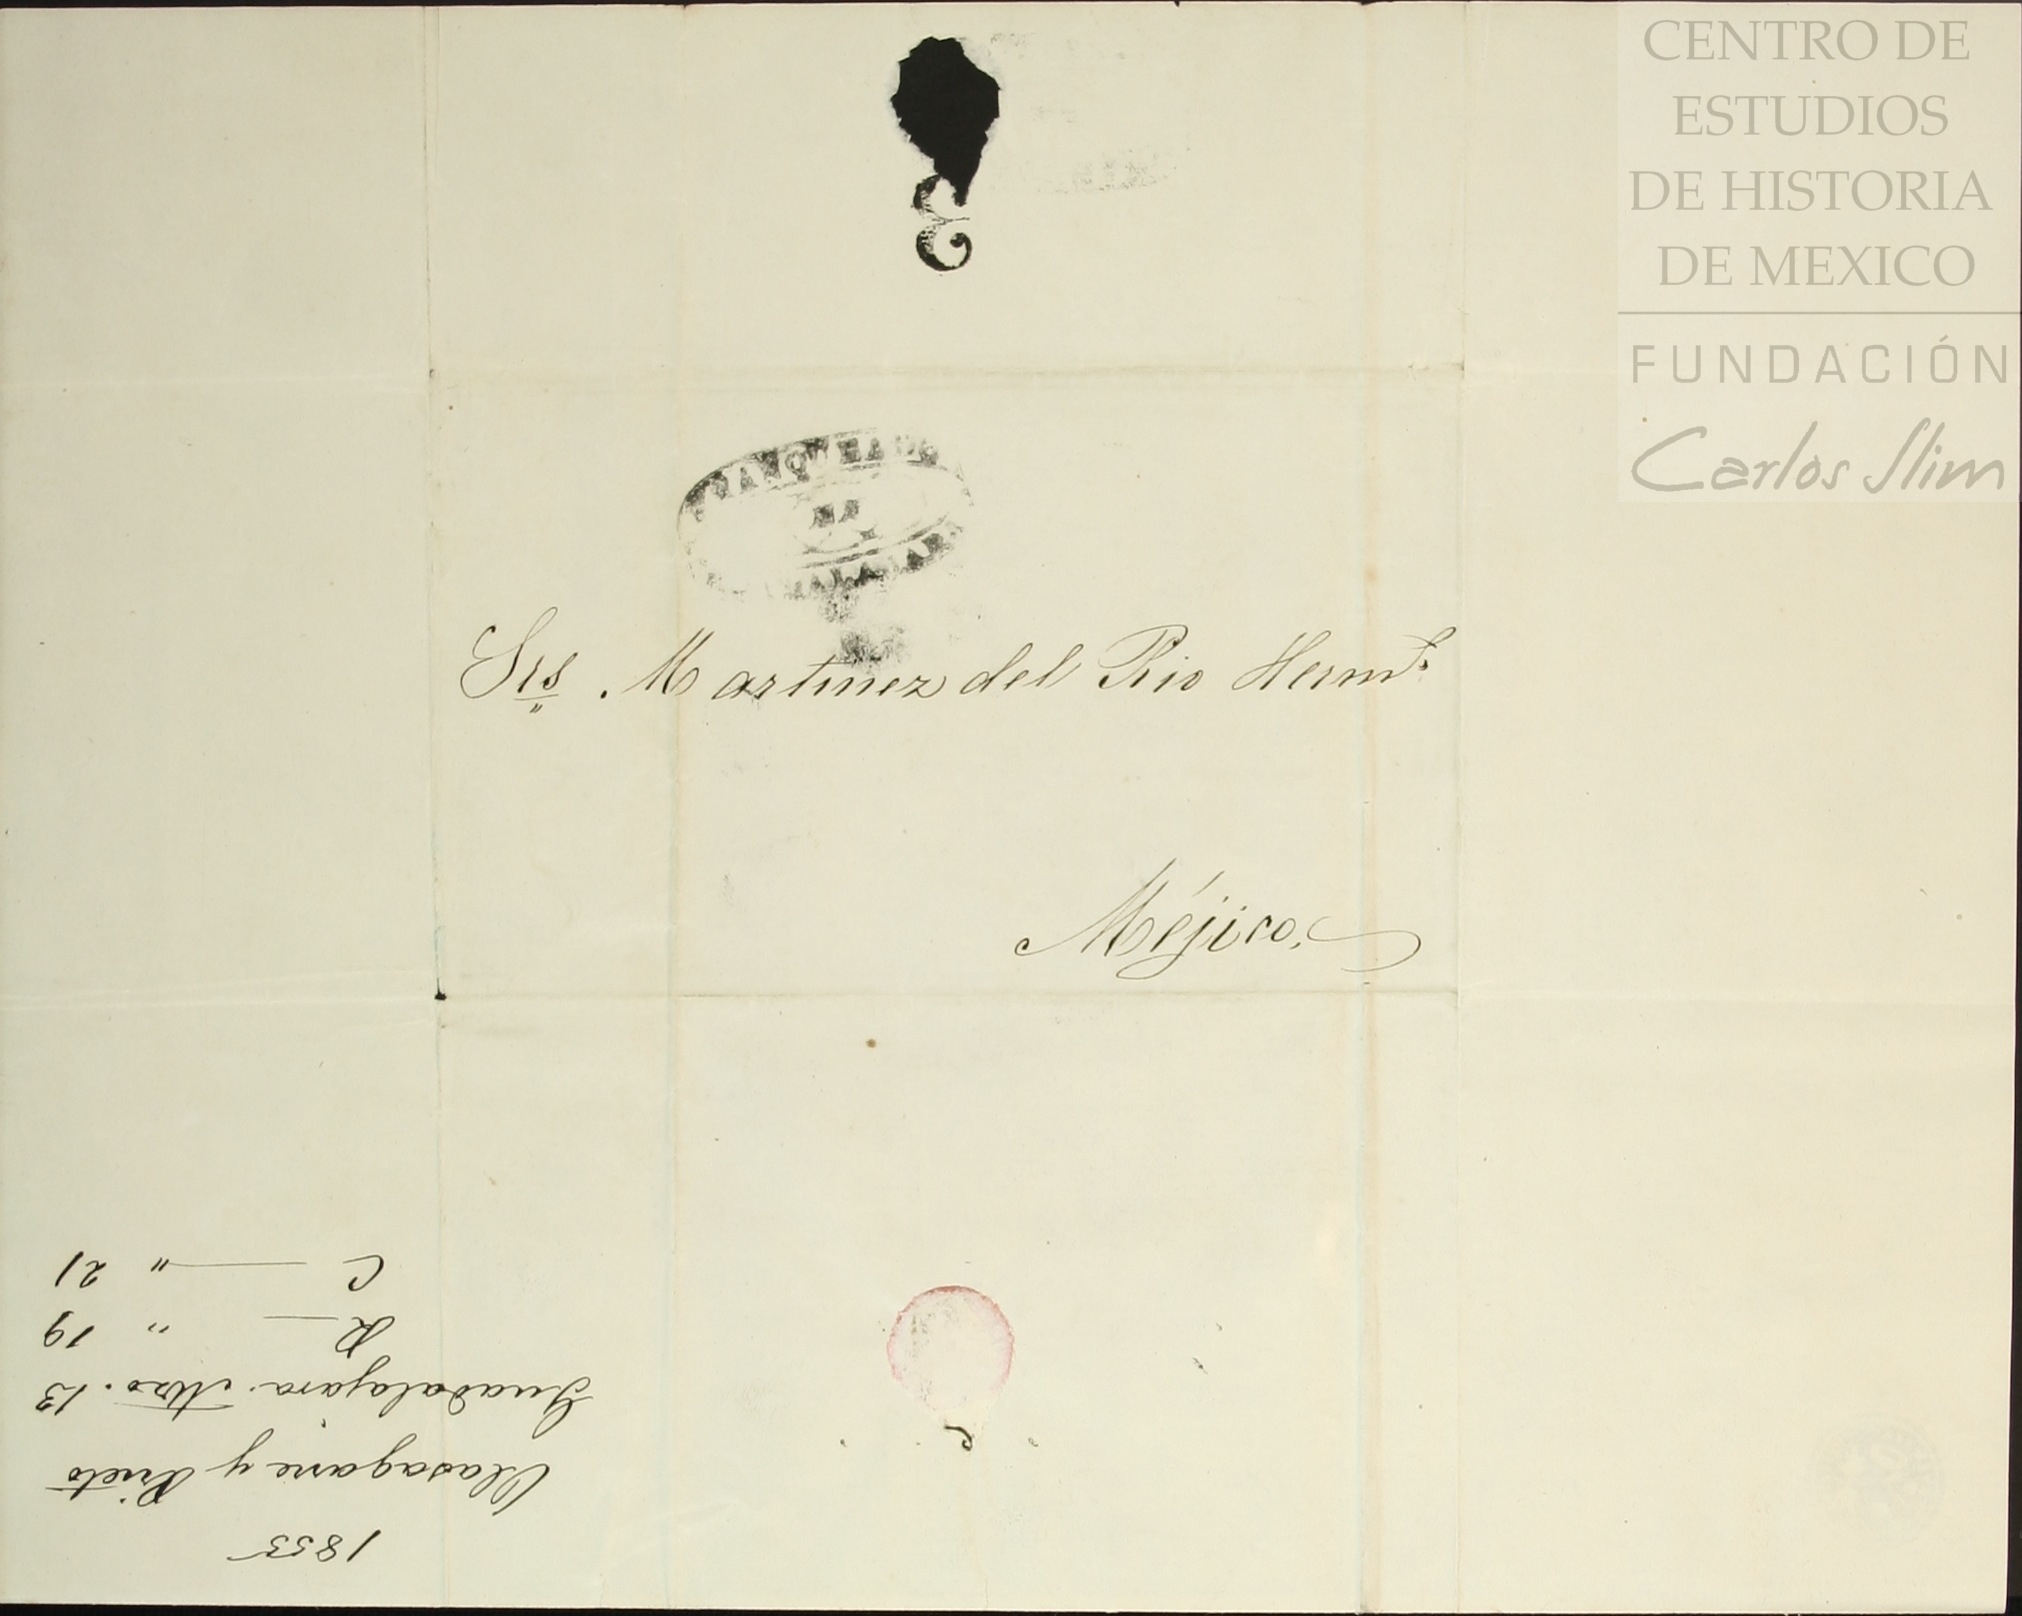 CENTRO DE
ESTUDIOS
DE HISTORIA
DE MEXICO
FUNDACIÓN
Carlos Slim
3
Srs. Martinez del Rio Herms
Méjico.
1855
Olasagarre y Prieto
Guadalajara. Mzo. 13
R — " 19
C — " 21